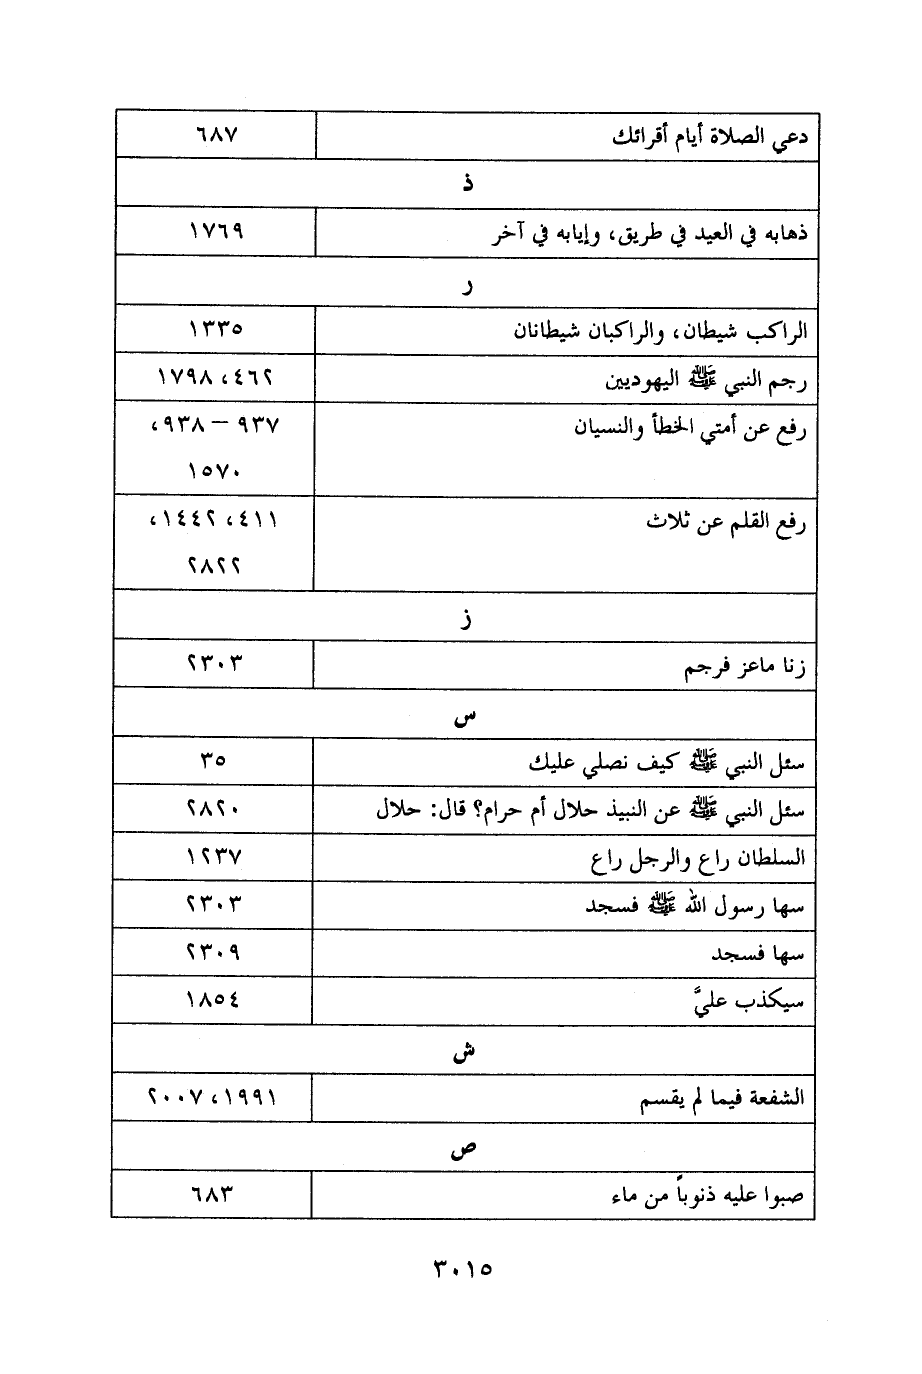 دعي الصلاة أيام أقرائك ٦٨٧
ذ
ذهابه في العيد في طريق، وإيابه في آخر ١٧٦٩
ر
الراكب شيطان، والراكبان شيطانان ١٣٣٥
رجم النبي ﷺ اليهوديين ٤٦٢، ١٧٩٨
رفع عن أمتي الخطأ والنسيان ٩٣٧ – ٩٣٨،
١٥٧٠
رفع القلم عن ثلاث ٤١١، ١٤٤٢،
٢٨٢٢
ز
زنا ماعز فرجم ٢٣٠٣
س
سئل النبي ﷺ كيف نصلي عليك ٣٥
سئل النبي ﷺ عن النبيذ حلال أم حرام؟ قال: حلال ٢٨٢٠
السلطان راع والرجل راع ١٢٣٧
سها رسول الله ﷺ فسجد ٢٣٠٣
سها فسجد ٢٣٠٩
سيكذب عليَّ ١٨٥٤
ش
الشفعة فيما لم يقسم ١٩٩١، ٢٠٠٧
ص
صبوا عليه ذنوباً من ماء ٦٨٣
٣٠١٥